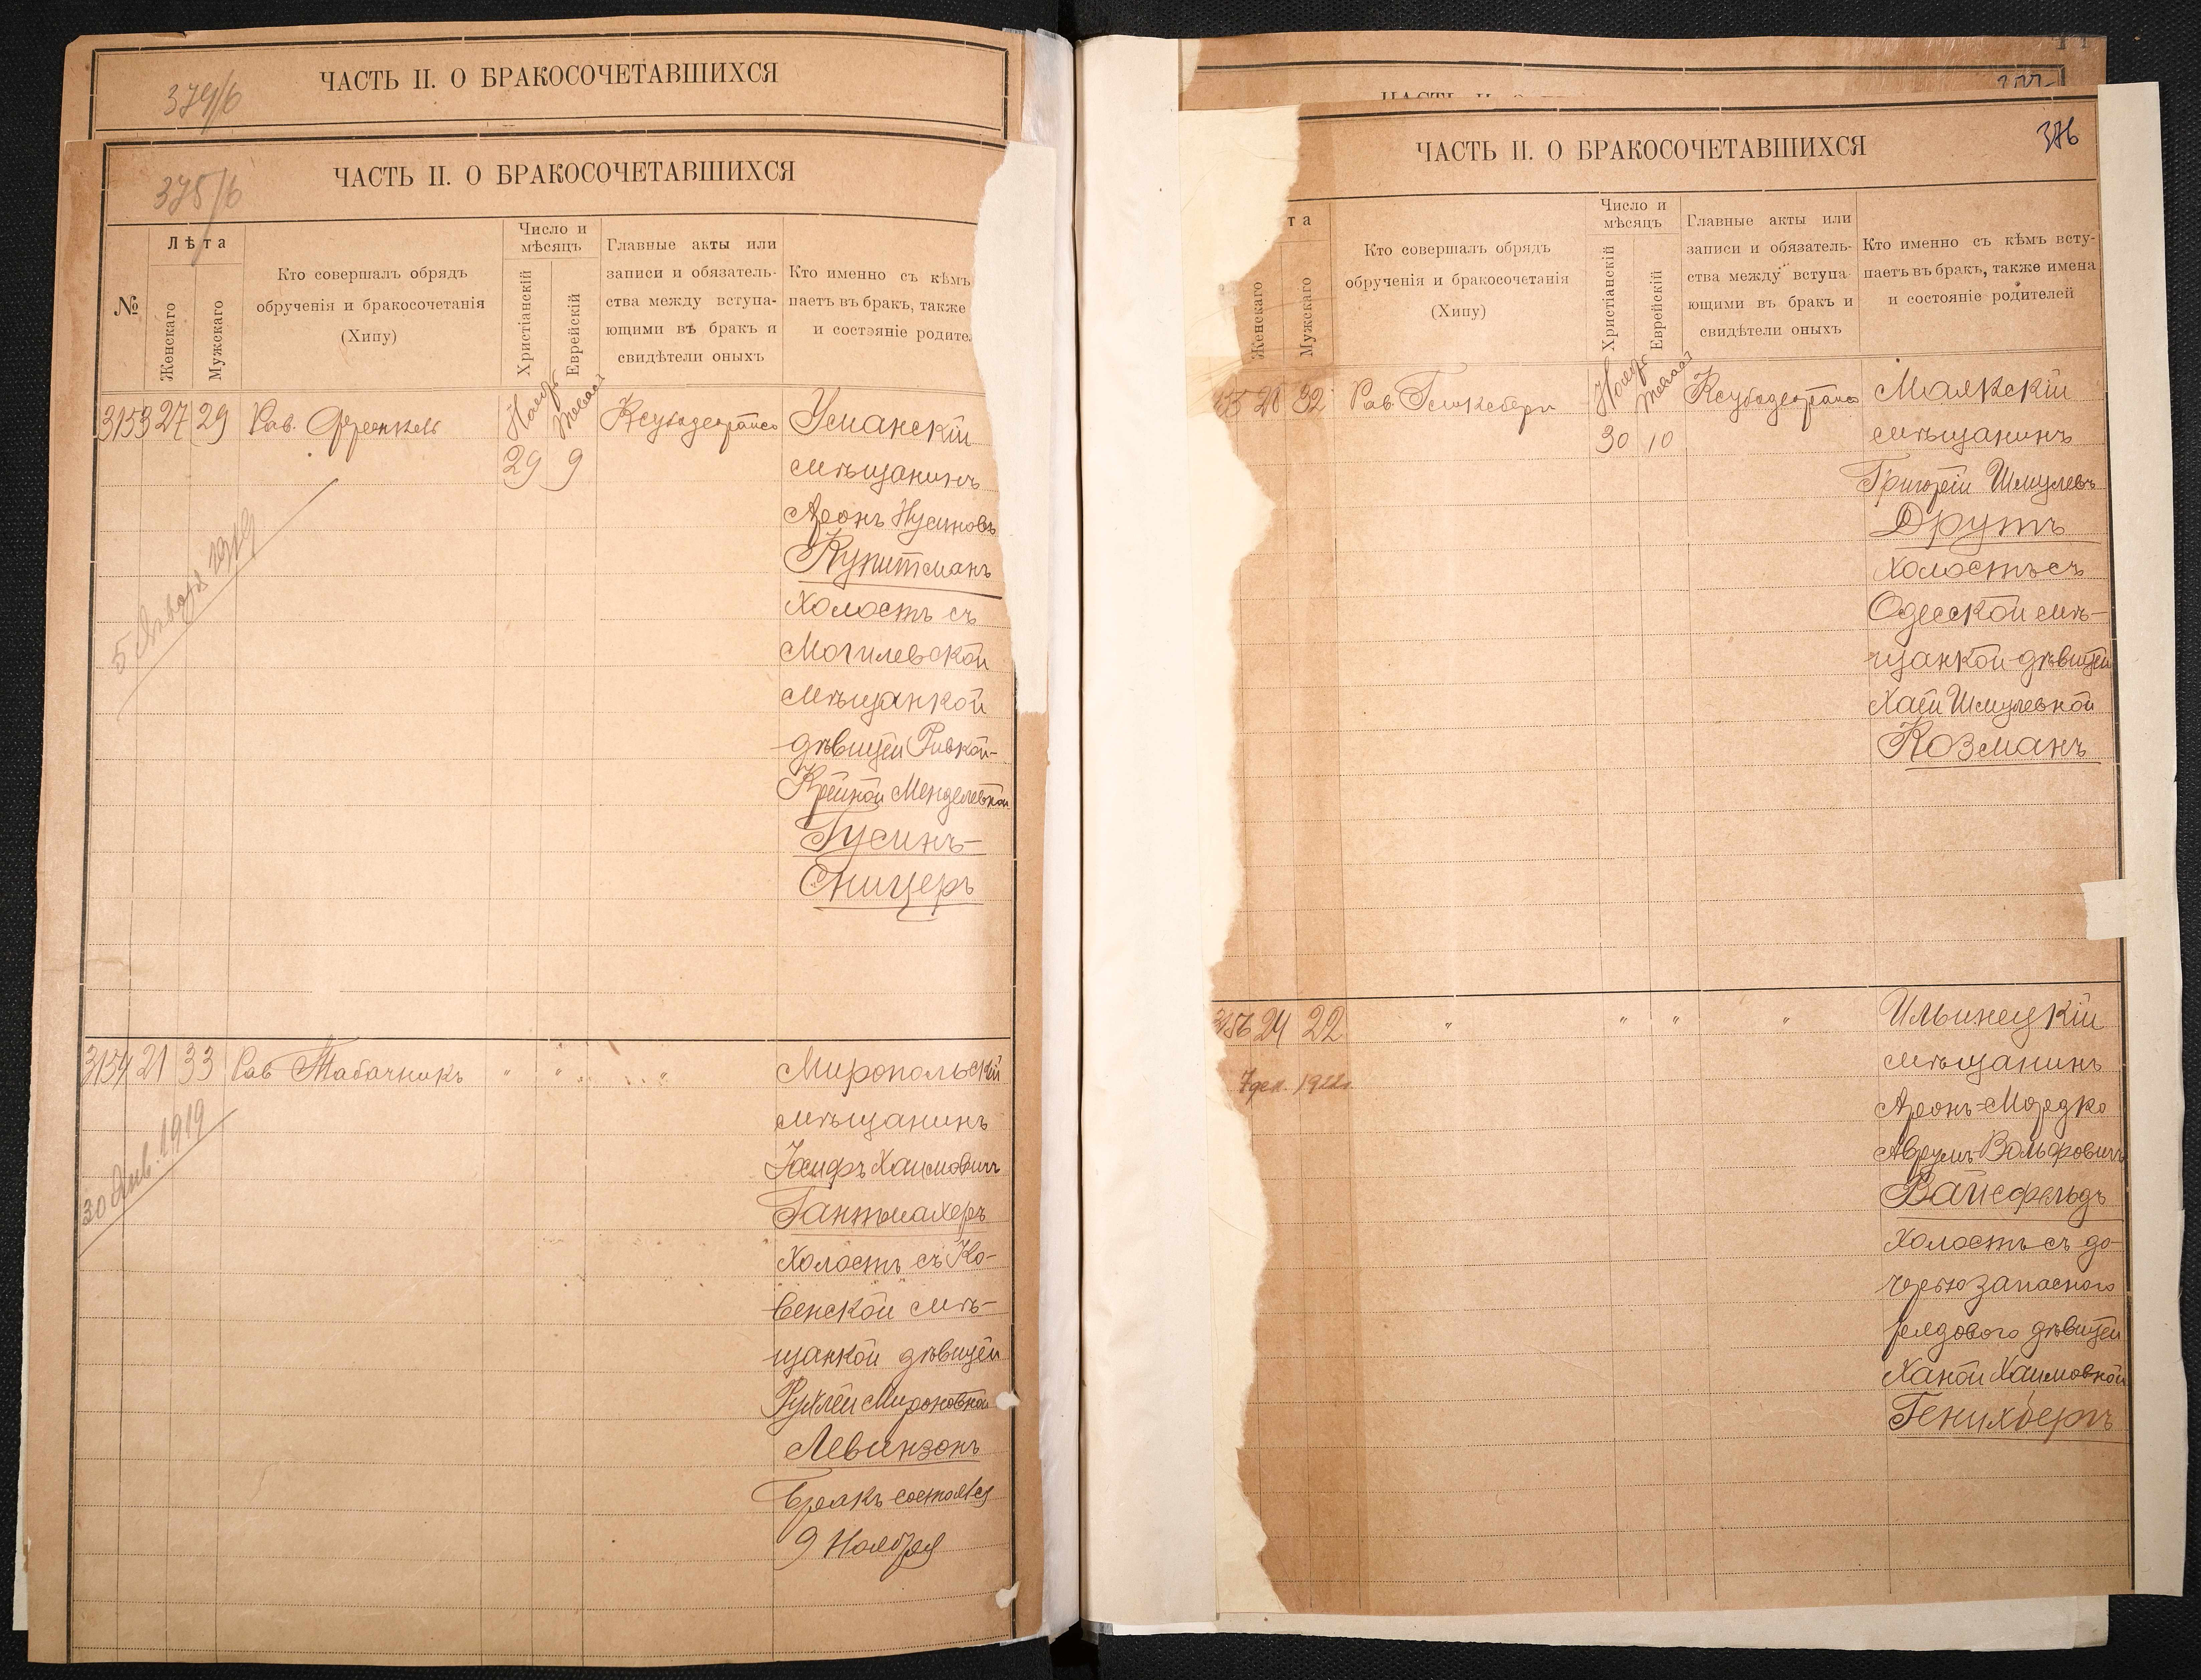 ЧАСТЬ II. О БРАКОСОЧЕТАВШИХСЯ
374/б
ЧАСТЬ II. О БРАКОСОЧЕТАВШИХСЯ
375/б
№
Лѣта
Женскаго
Мужскаго
Кто совершалъ обрядъ
обрученія и бракосочетанія
(Хипу)
Число и
мѣсяцъ
Христіанскій
Еврейскій
Главные акты или
записи и обязатель-
ства между вступа-
ющими въ бракъ и
свидѣтели оныхъ
Кто именно съ кѣмъ
паетъ въ бракъ, также
и состояніе родите
3153 27 29 Рав. Френкель
Нояб 29
9
Уманскій
мѣщанинъ
Аронъ Нусиновъ
Купитманъ
холостъ съ
Могилевской
мѣщанкой
дѣвицей Ривкой-
Крейной Менделевной
Гусинъ-
Сницеръ
5 Января 1919
3154 21 33 Рав Табачникъ " " "
Миропольскій
мѣщанинъ
Хаимовичъ
Гантмахеръ
Холостъ съ Ко-
венской мѣ-
щанкой дѣвицей
Рухлей Мироновной
Левинзонъ
Бракъ состоялся
9 Ноября
30 Янв. 1919
ЧАСТЬ II. О БРАКОСОЧЕТАВШИХСЯ
376
та
Женскаго
Мужскаго
Кто совершалъ обрядъ
обрученія и бракосочетанія
(Хипу)
Число и
мѣсяцъ
Христіанскій
Еврейскій
Главные акты или
записи и обязатель-
ства между вступа-
ющими въ бракъ и
свидѣтели оныхъ
Кто именно съ кѣмъ всту-
паетъ въ бракъ, также имена
и состояніе родителей
28 32 Рав. Гликсберг
Нояб 30
10
Маякскій
мѣщанинъ
Григорій Шмулевъ
Друтъ
холостъ съ
Одесской мѣ-
щанкой дѣвицей
Хаей Шмулевной
Козманъ
3156 24 22 " " " "
7 дек. 1922г.
Ильинецкій
мѣщанинъ
Аронъ-Мордко
Аврумъ-Вольфовичъ
Вайсфельдъ
Холостъ съ до-
черью запасного
рядового дѣвицей
Ханой Хаимовной
Генихбергъ